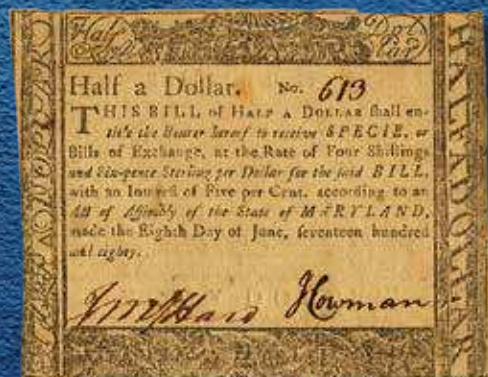 Half a
Doll.
Half a Dollar. No. 613
THIS BILL of HALF A DOLLAR shall en-
title the Bearer hereof to receive SPECIE, or
Bills of Exchange, at the Rate of Four Shillings
and Six-pence Sterling per Dollar for the said BILL,
with an Interest of Five per Cent. according to an
Act of Assembly of the State of MARYLAND,
made the Eighth Day of June, seventeen hundred
and eighty.
HALF A DOLLAR